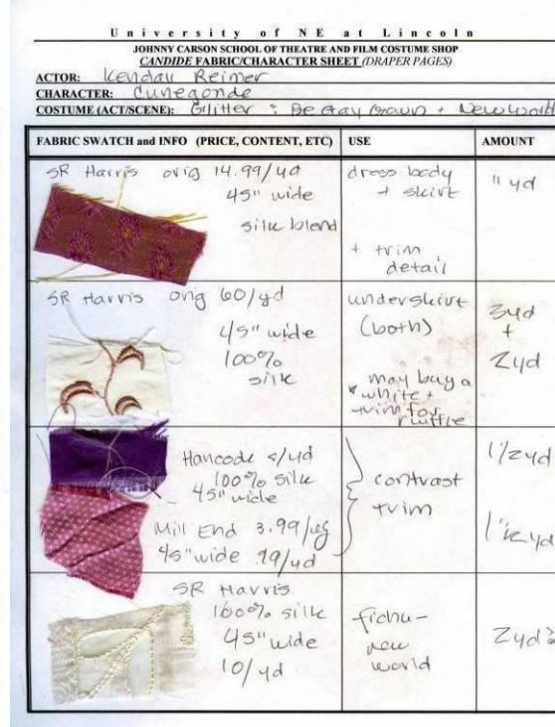 University of NE at Lincoln
JOHNNY CARSON SCHOOL OF THEATRE AND FILM COSTUME SHOP
CANDIDE FABRIC/CHARACTER SHEET (DRAPER PAGES)
ACTOR: Kendall Reimer
CHARACTER: Cunegonde
COSTUME (ACT/SCENE): Glitter : Be Gay Gown + New World
FABRIC SWATCH and INFO (PRICE, CONTENT, ETC) USE AMOUNT
SR Harris orig 14.99/yd
45" wide
silk blend
dress body
+ skirt
+ trim
detail
11 yd
SR Harris orig 60/yd
45" wide
100%
silk
underskirt
(both)
may buy a
white +
trim for
ruffle
3yd
+
2yd
Hancock /yd
100% silk
45" wide
Mill End 3.99/
45" wide .79/yd
contrast
trim
1 1/2 yd
1 yd
SR Harris
100% silk
45" wide
10/yd
fichu -
new
world
2yd